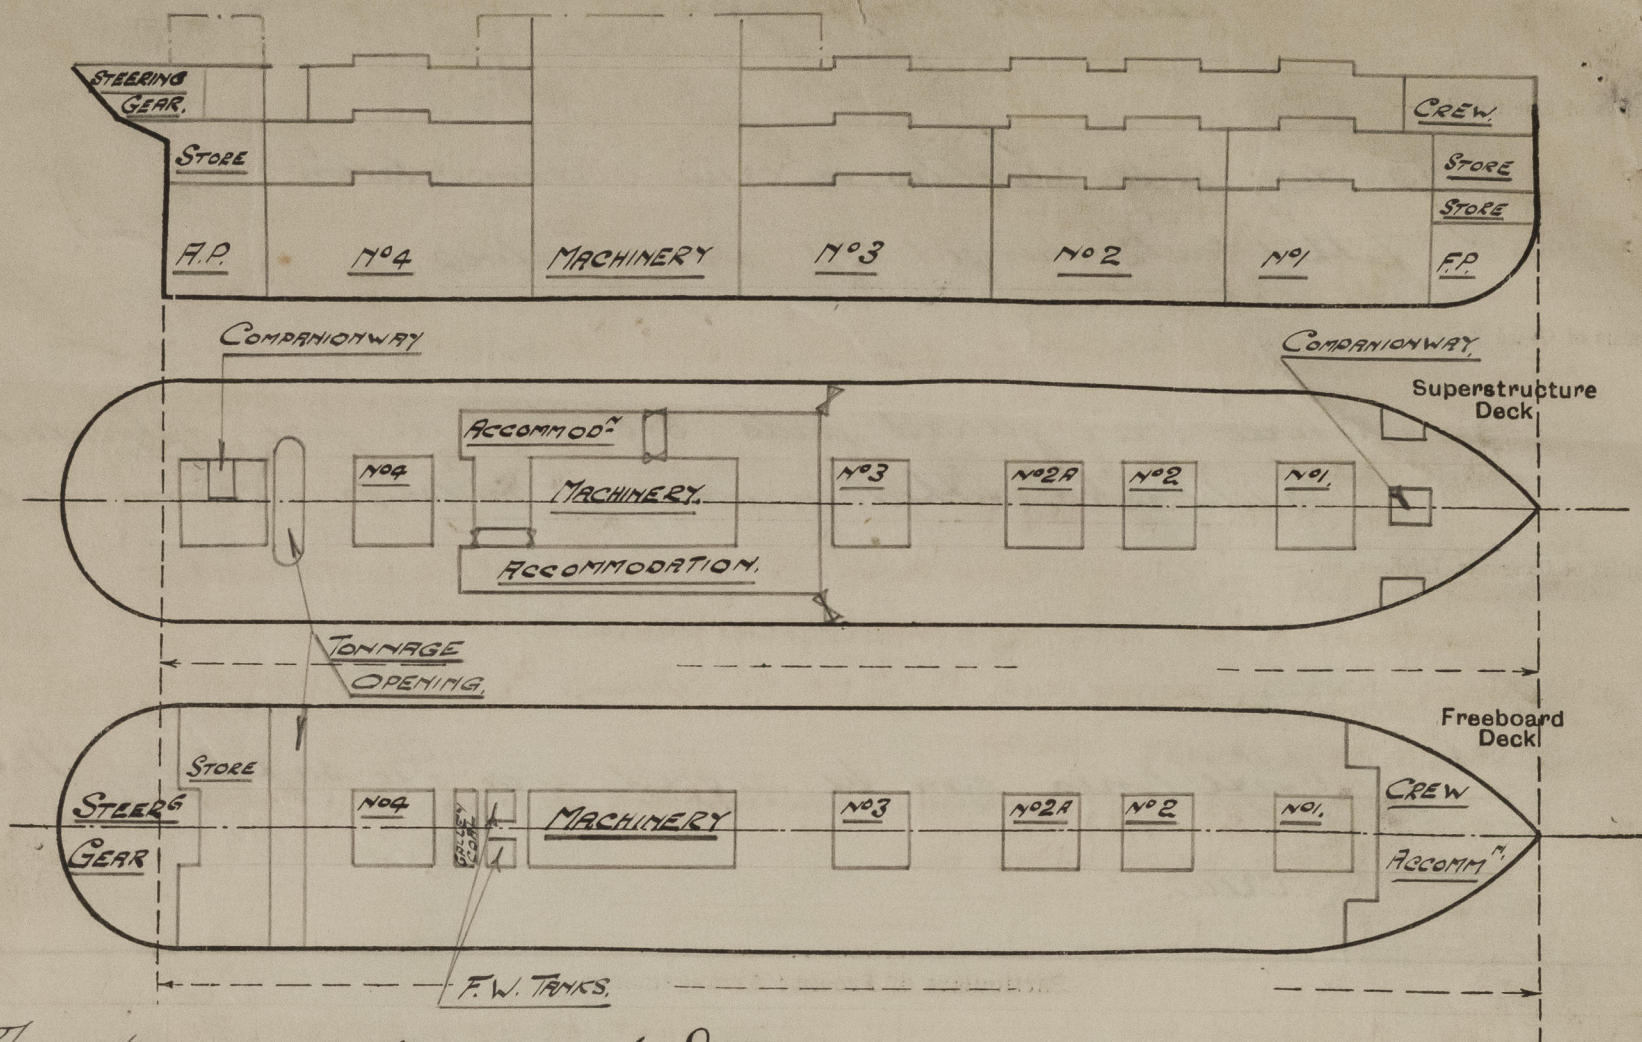 STEERING
GEAR.
CREW.
STORE
STORE
STORE
A.P.
No4
MACHINERY
No3
No2
No1
F.P.
COMPANIONWAY
COMPANIONWAY.
Superstructure
Deck
ACCOMMODN
No4
MACHINERY.
No3
No2A
No2
No1.
ACCOMMODATION.
TONNAGE
OPENING.
Freeboard
Deck
STORE
STEERG
GEAR
No4
GALLEY
COAL
MACHINERY
No3
No2A
No2
No1.
CREW
ACCOMMN.
F.W. TANKS.